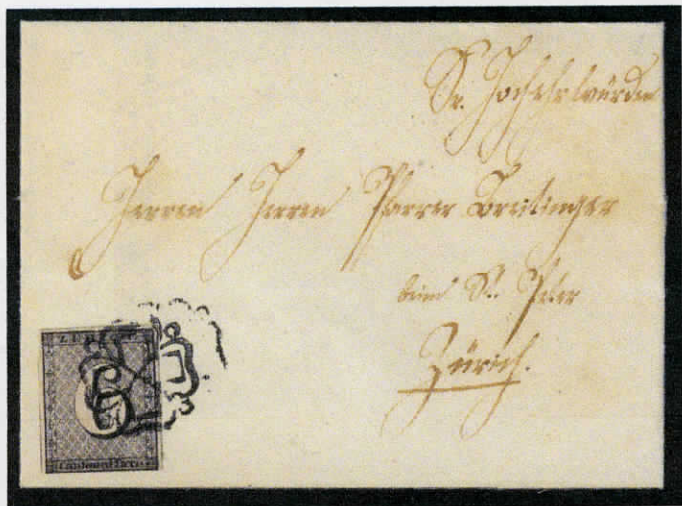 Sr. Hochehrwürden
Herren Herren Pfarrer Breitinger
beim St. Peter
Zürich.
ZÜRICH
6
Cantonal-Taxe